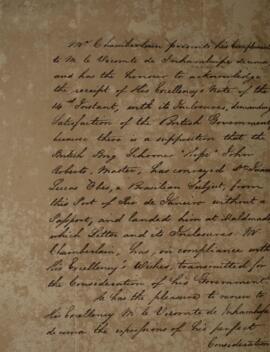 Mr Chamberlain presents his Compliments
to M. le Viconte de Inhambupe de cima
and has the honour to acknowledge
the receipt of His Excellency's Note of the
14th Instant, with its Inclosures, demanding
Satisfaction of the British Government
because there is a supposition that the
British Brig Schooner "Hope" John
Roberts, Master, has conveyed
Lucas a Brazilian Subject, from
this Port of Rio de Janeiro without a
Passport, and landed him at Maldonado
which Letter and its Inclosures Mr
Chamberlain, has, in compliance with
His Excellency's Wishes, transmitted for
the Consideration of his Government.
He has the pleasure to renew to
His Excellency M. le Viconte de Inhambupe
de cima the expressions of his perfect
Consideration